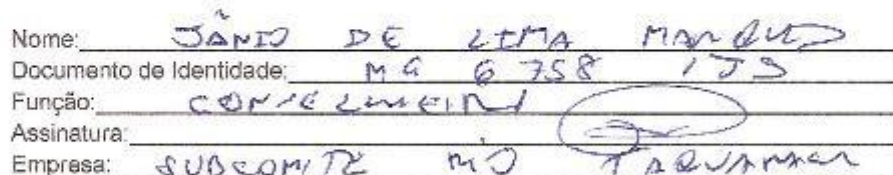 Nome: JÂNIO DE LIMA MARQUES
Documento de Identidade: MG 6 758
Função: CONSELHEIRO
Assinatura:
Empresa: SUBCOMITÊ RIO TAQUARAÇU